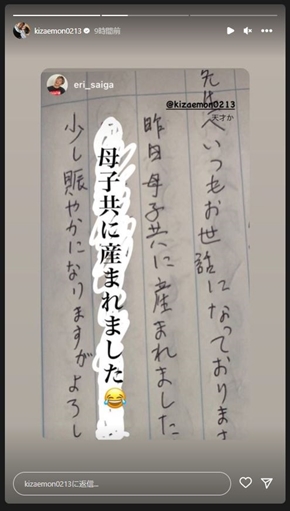 kizaemon0213 9時間前
eri_saiga
@kizaemon0213
天才か
先生へいつもお世話になっておりま
昨日母子共に産まれました
母子共に産まれました😂
少し賑やかになりますがよろし
kizaemon0213に返信...